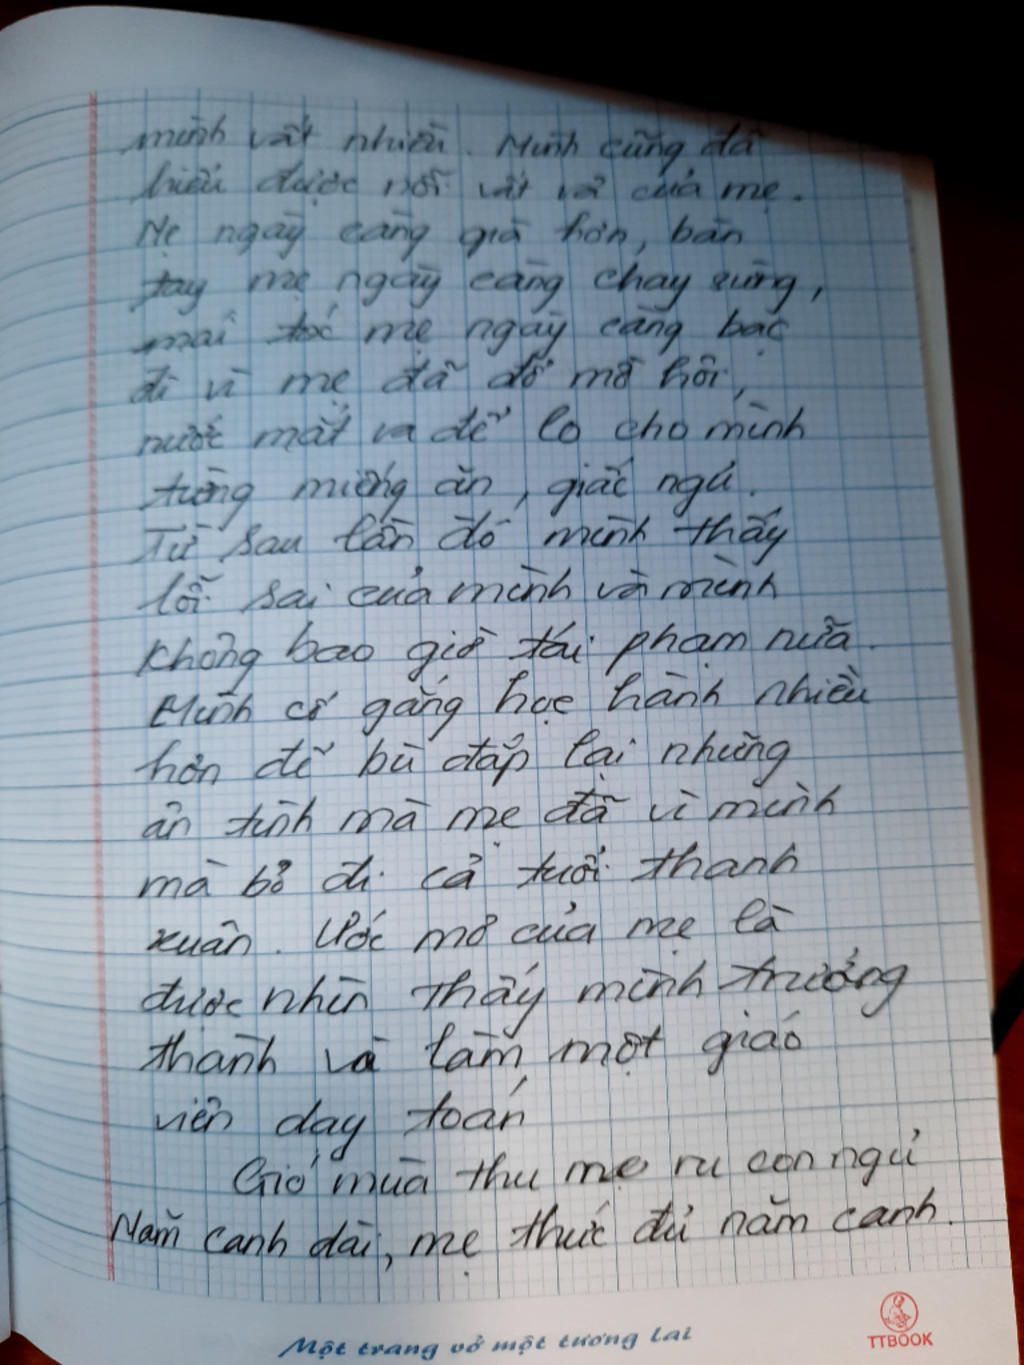 mình rất nhiều. Mình cũng đã
hiểu được nỗi vất vả của mẹ.
Mẹ ngày càng già hơn, bàn
tay mẹ ngày càng chay sừng,
mái tóc mẹ ngày càng bạc
đi vì mẹ đã đổ mồ hôi,
nước mắt ra để lo cho mình
từng miếng ăn, giấc ngủ.
Từ sau lần đó mình thấy
lỗi sai của mình và mình
không bao giờ tái phạm nữa.
Mình cố gắng học hành nhiều
hơn để bù đắp lại những
ân tình mà mẹ đã vì mình
mà bỏ đi cả tuổi thanh
xuân. Ước mơ của mẹ là
được nhìn thấy mình trưởng
thành và làm một giáo
viên dạy toán
Gió mùa thu mẹ ru con ngủ
Năm canh dài, mẹ thức đủ năm canh.
Một trang vở một tương lai
TTBOOK